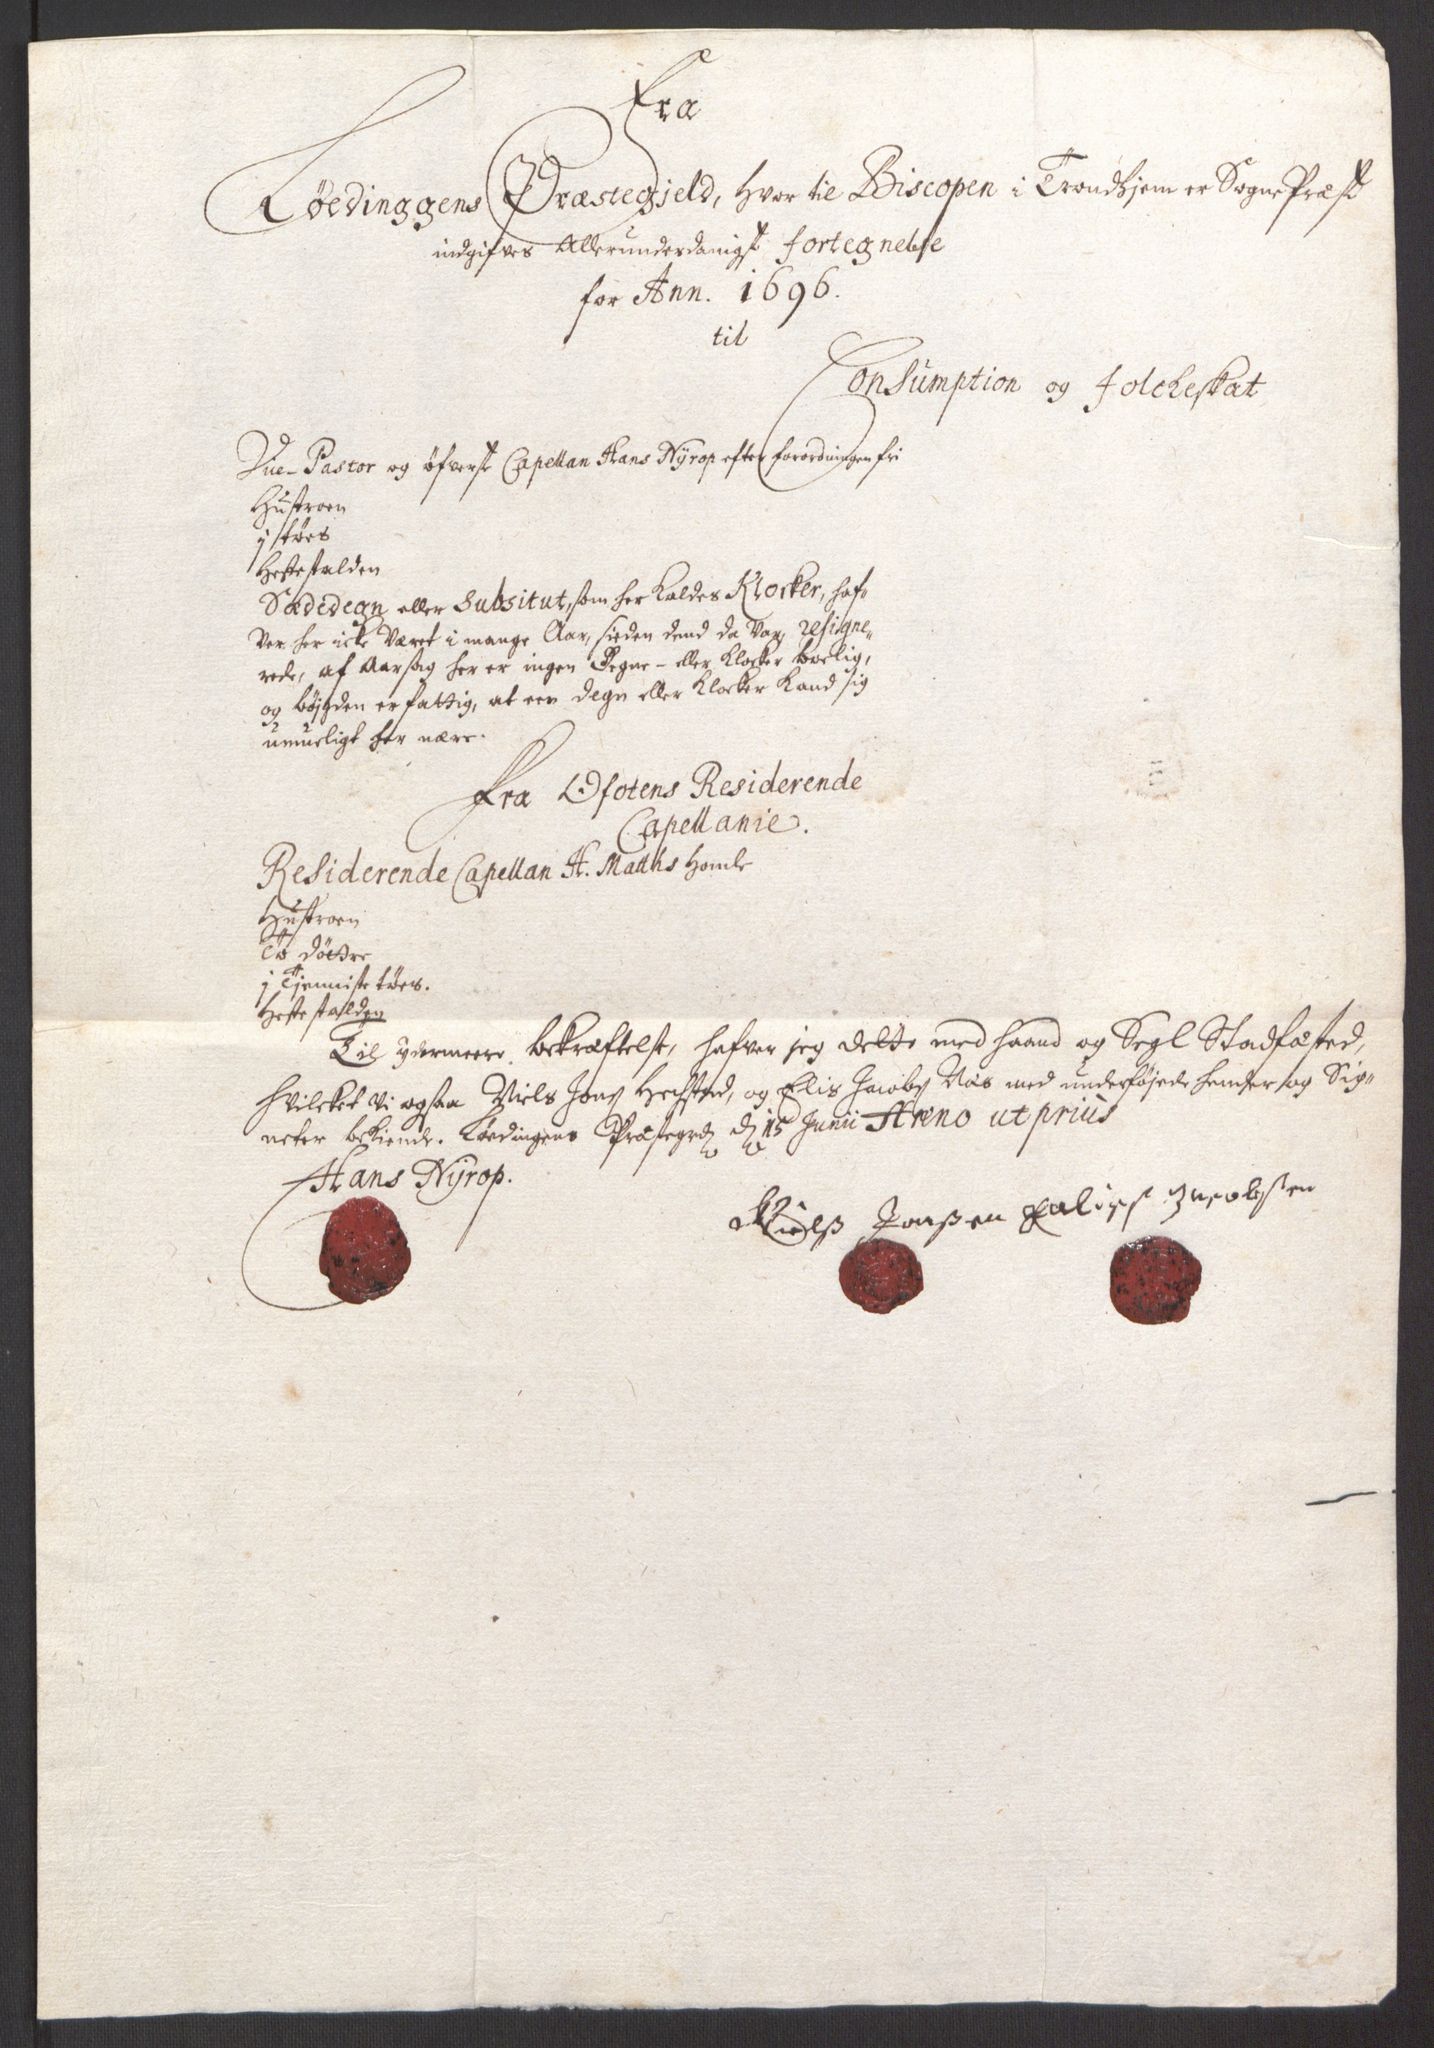 Fra
Løedinggens Præstegield, hvor til Biscopen i Trondhjem er Sogne Præst
indgifves Allerunderdanigst fortegnelse
for Ann. 1696.
til
Consumption og Folcheskat
Vice-Pastor og øfverst Capellan Hans Nyrop efter forordningen fri
Hustroen
j tøes
Hestestalden
Sædedegn eller Subsitut, som her kaldes Klocker, haf-
ver her icke været i mange Aar, sieden dend da var, resigne-
rede, af Aarsag her er ingen Degne- eller Klocker boelig,
og bøygden er fattig, at een Degn eller Klocker kand sig
umueligt her nære.
Fra Ofotens Residerende
Capellanie.
Residerende Capellan H. Maths Homle
Hustroen
To døttre
j Tjenniste tøes.
Hestestalden
Til ydermeere bekræftelse, hafver jeg dette med haand og Segl Stadfæsted,
hvilcket vi ogsaa Niels Jons Hechstad, og Elis Jacobs Næs med underføjede hender og Sig-
neter bekiende. Løedingens Præstegrd d 15 Junii Anno ut prius
Hans Nyrop.
Nielss Jonssen Ealiess Jacobssen